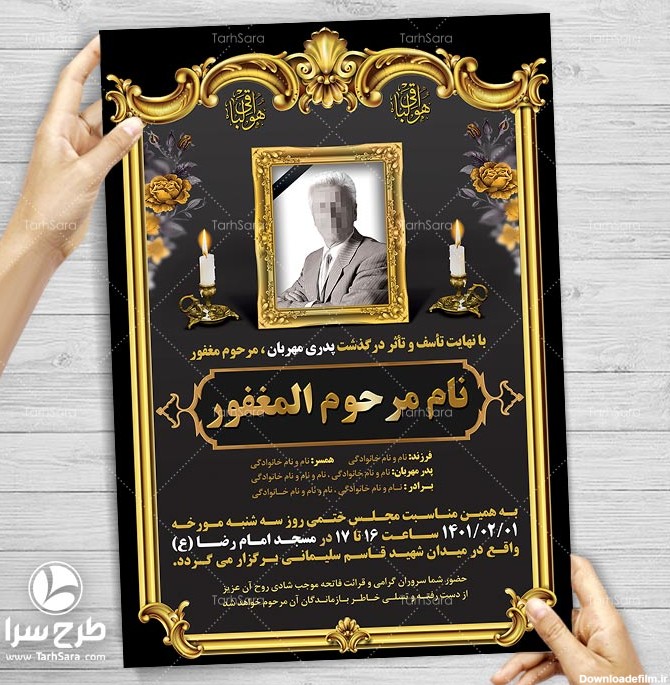 TarhSara
TarhSara
TarhSara
هوالباقی
هوالباقی
TarhSara
TarhSara
TarhSara
TarhSara
TarhSara
TarhSara
با نهایت تأسف و تأثر درگذشت پدری مهربان ، مرحوم مغفور
نام مرحوم المغفور
TarhSara
TarhSara
TarhSara
فرزند: نام و نام خانوادگی    همسر: نام و نام خانوادگی
پدر مهربان: نام و نام خانوادگی ، نام و نام و نام خانوادگی
برادر : نام و نام خانوادگی ، نام و نام خانوادگی
به همین مناسبت مجلس ختمی روز سه شنبه مورخه
۱۴۰۱/۰۲/۰۱ ساعت ۱۶ تا ۱۷ در مسجد امام رضا (ع)
واقع در میدان شهید قاسم سلیمانی برگزار می گردد.
حضور شما سروران گرامی و قرائت فاتحه موجب شادی روح آن عزیز
از دست رفته و تسلی خاطر بازماندگان آن مرحوم خواهد شد
TarhSara
TarhSara
طرح سرا
www.TarhSara.com
Downloadefilm.ir